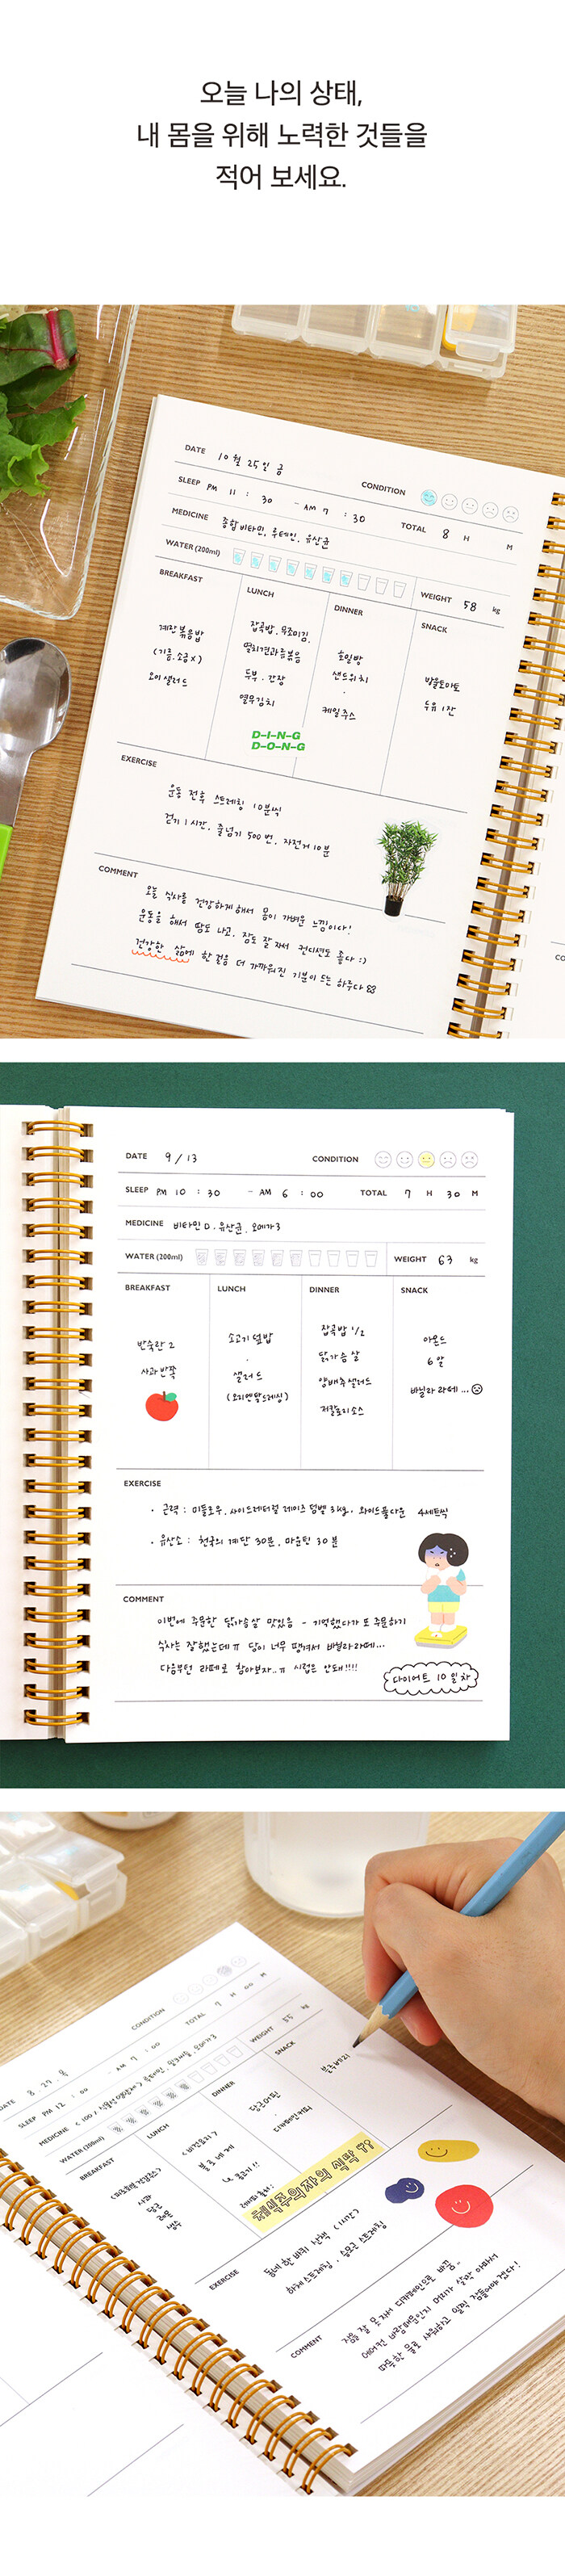 오늘 나의 상태,
내 몸을 위해 노력한 것들을
적어 보세요.
DATE 10월 25일 금
CONDITION
SLEEP PM 11 : 30 - AM 7 : 30 TOTAL 8 H M
MEDICINE 종합비타민, 루테인, 유산균
WATER (200ml) WEIGHT 58 kg
BREAKFAST LUNCH DINNER SNACK
계란볶음밥
(기름, 소금 X)
오이샐러드
잡곡밥, 묵조미김,
멸치견과류볶음
두부 · 간장
열무김치
호밀빵
샌드위치
·
케일주스
방울토마토
두유 1잔
D-I-N-G
D-O-N-G
EXERCISE
운동 전후 스트레칭 10분씩
걷기 1시간, 줄넘기 500번, 자전거 10분
COMMENT
오늘 식사를 건강하게 해서 몸이 가벼운 느낌이다!
운동을 해서 땀도 나고, 잠도 잘 자서 컨디션도 좋다 :)
건강한 삶에 한 걸음 더 가까워진 기분이 드는 하루다
CO
DATE 9/13 CONDITION
SLEEP PM 10 : 30 - AM 6 : 00 TOTAL 7 H 30 M
MEDICINE 비타민 D, 유산균, 오메가3
WATER (200ml) WEIGHT 63 kg
BREAKFAST LUNCH DINNER SNACK
반숙란 2
사과 반쪽
소고기 덮밥
·
샐러드
(오리엔탈드레싱)
잡곡밥 1/2
닭가슴살
양배추샐러드
저칼로리소스
아몬드
6알
바닐라 라떼...
EXERCISE
· 근력 : 미들로우, 사이드레터럴 레이즈 덤벨 3kg, 와이드풀다운 4세트씩
· 유산소 : 천국의 계단 30분, 마운틴 30분
COMMENT
이번에 주문한 닭가슴살 맛있음 - 기억했다가 또 주문하기
식사는 잘했는데ㅠ 당이 너무 땡겨서 바닐라라떼...
다음부턴 라떼로 참아보자..ㅠ 시럽은 안돼!!!!
다이어트 10일차
DATE 8. 27. 목
CONDITION
SLEEP PM 12 : 00 - AM 7 : 00 TOTAL 7 H 00 M
MEDICINE
WATER (200ml) WEIGHT 55 kg
BREAKFAST LUNCH DINNER SNACK
사과
당근
레몬
냉수
당근라떼
·
디카페인커피
블루베리
채식주의자의 식탁
EXERCISE
동네 한 바퀴 산책
하체 스트레칭, 승모근 스트레칭
COMMENT
잠을 잘 못 자서 디카페인으로 바꿈~
에어컨 바람때문인지 머리가 살짝 아파서
따뜻한 물로 샤워하고 일찍 잠들어야겠다!